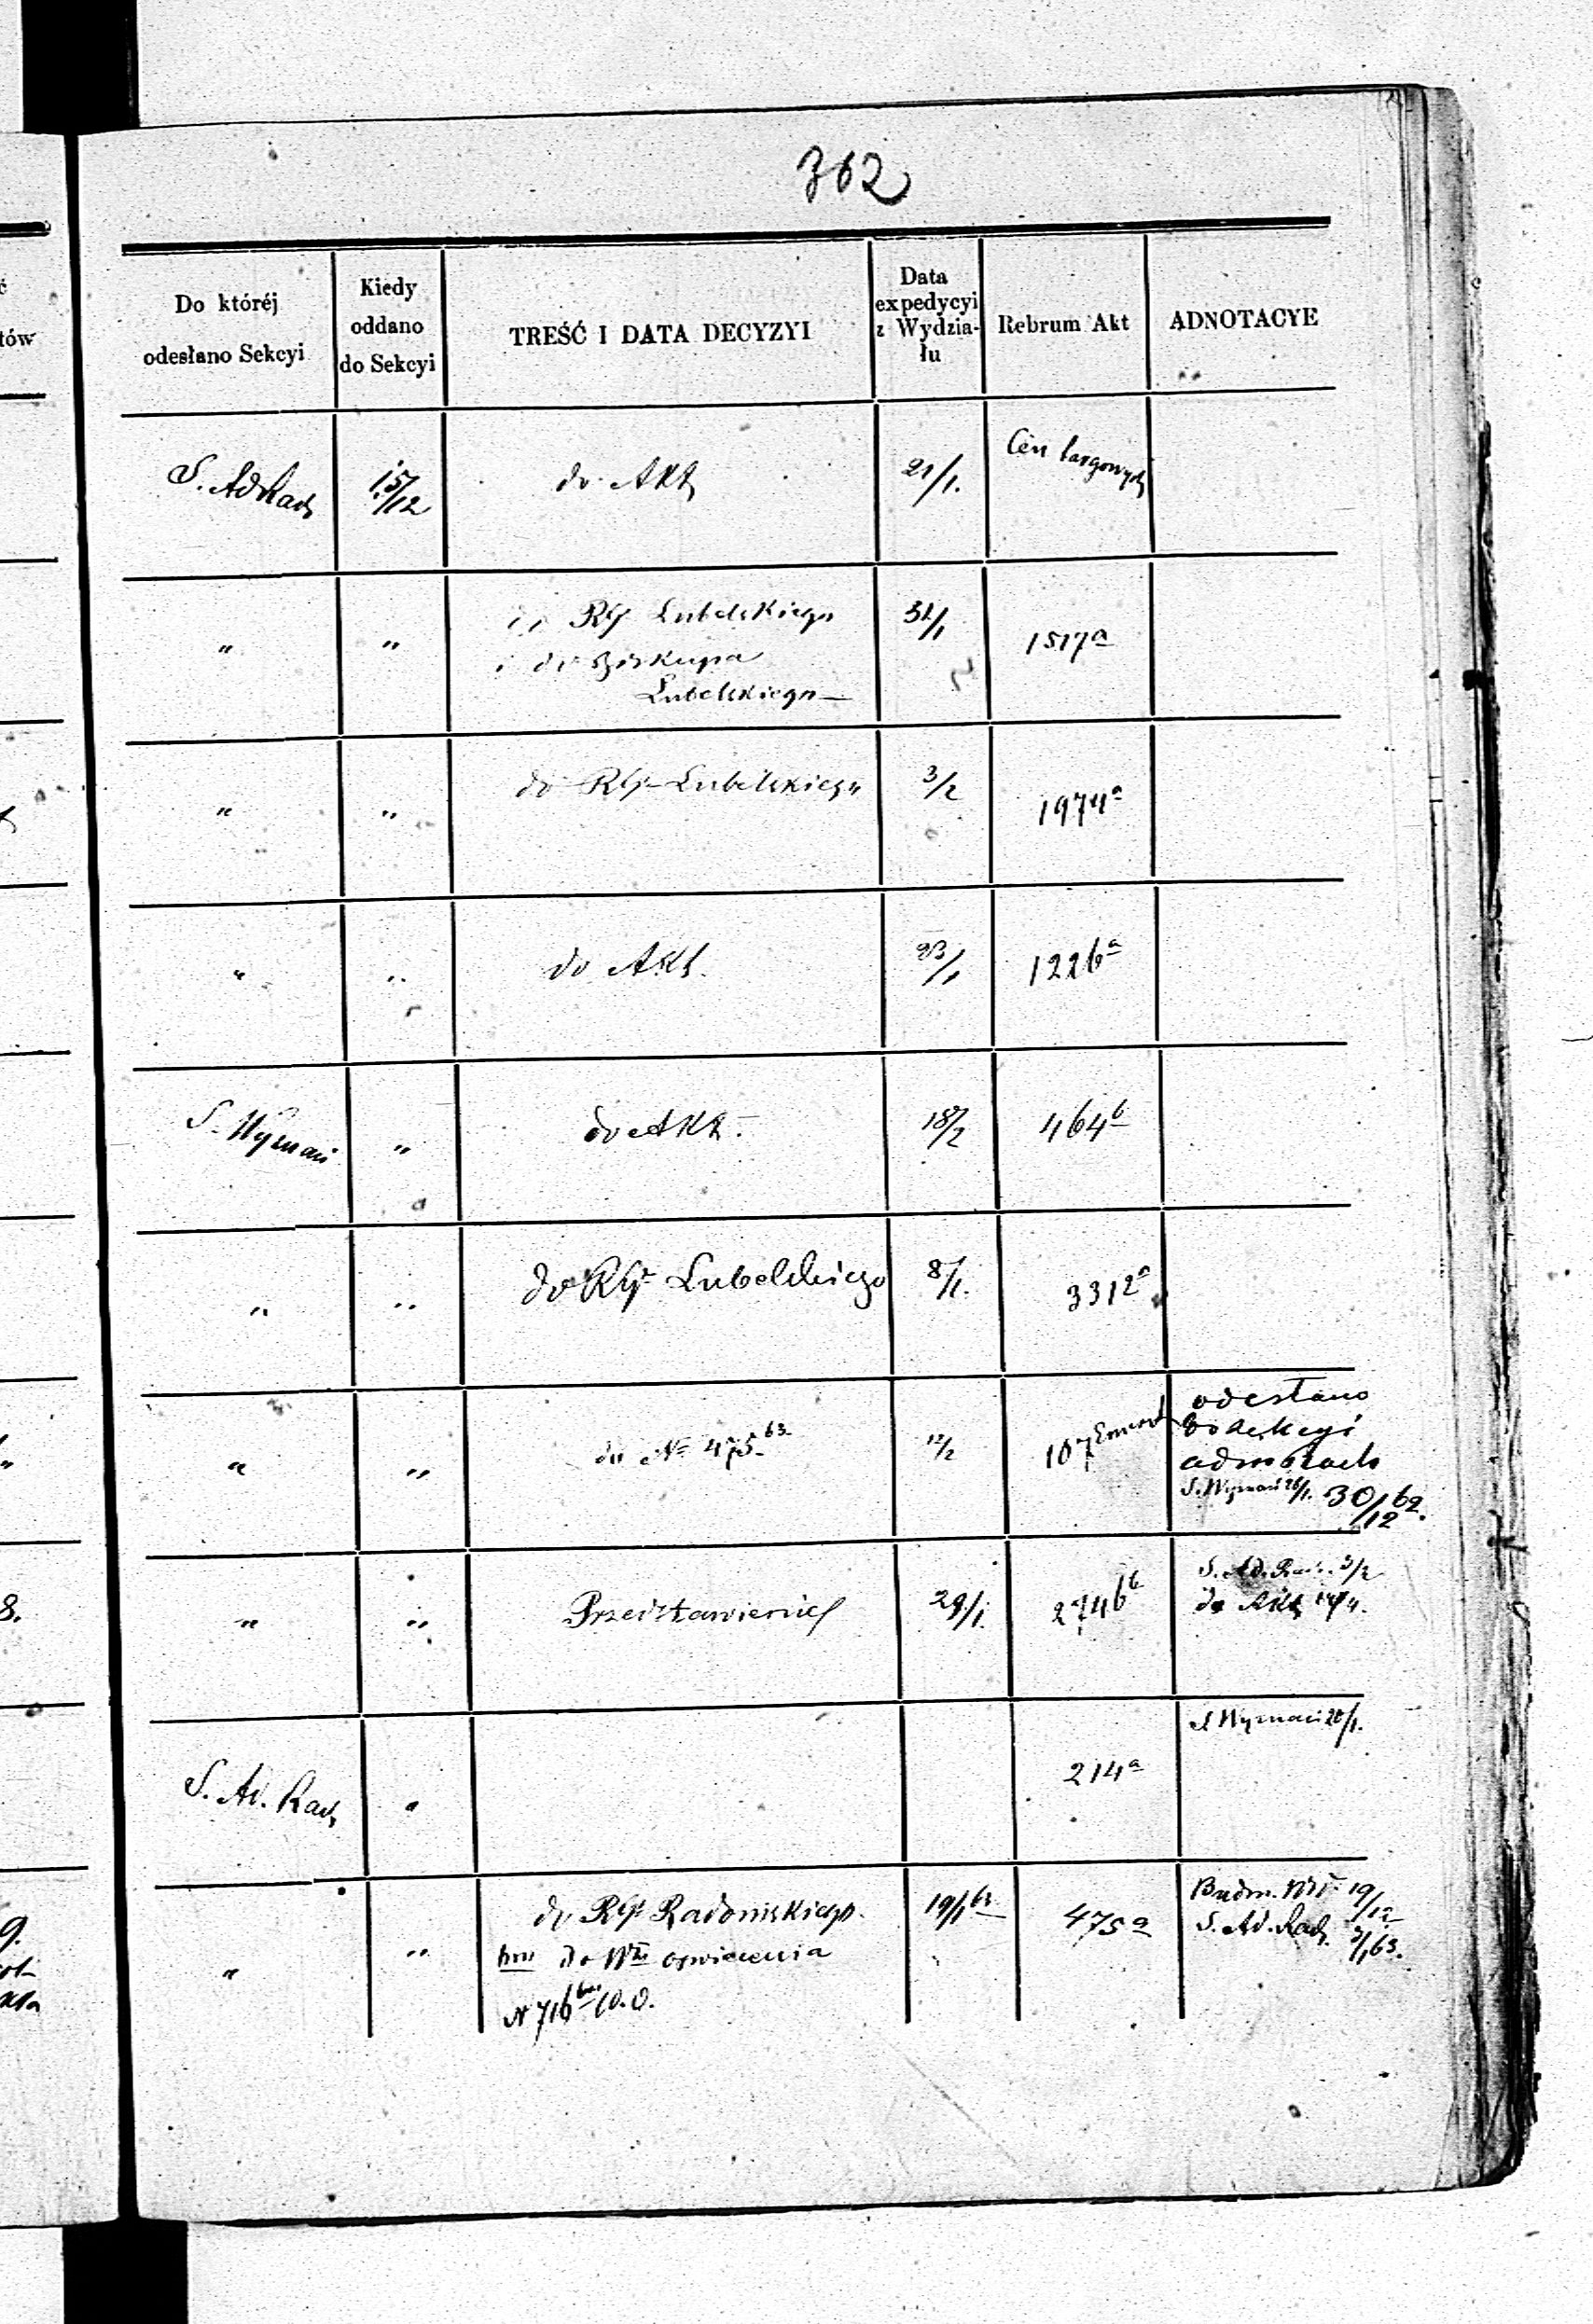 362
Do któréj
odesłano Sekcyi
Kiedy
oddano
do Sekcyi
TREŚĆ I DATA DECYZYI
Data
expedycyi
z Wydzia-
łu
Rebrum Akt
ADNOTACYE
S. Ad Rach
15/12
do Akt
21/1.
Cen targowych
"
"
do RGy Lubelskiego
i do Biskupa
Lubelskiego
31/1
1517a
"
"
do RGy Lubelskiego
3/2
1974a
"
"
do Akt.
23/1
1226a
S. Wyznań
"
do Akt.
18/2
464b
"
"
do RGy Lubelskiego
8/1.
3312a
"
"
do No 475 63
12/2
107 Emeryt
odesłano
do Sekcyi
adm Rach
S. Wyznań 26/1. 30/12 62.
"
"
Przedstawienie
29/1.
2746b
S. Ad. Rach. 3/2
do Akt 14/4.
S. Ad. Rach
"
214a
S Wyznań 20/1.
"
"
do RGy Radomskiego.
do Wu oswiecenia
N 716
19/1 63
475a
19/12
S. Ad. Rach. 3/1 63.
8.
9.